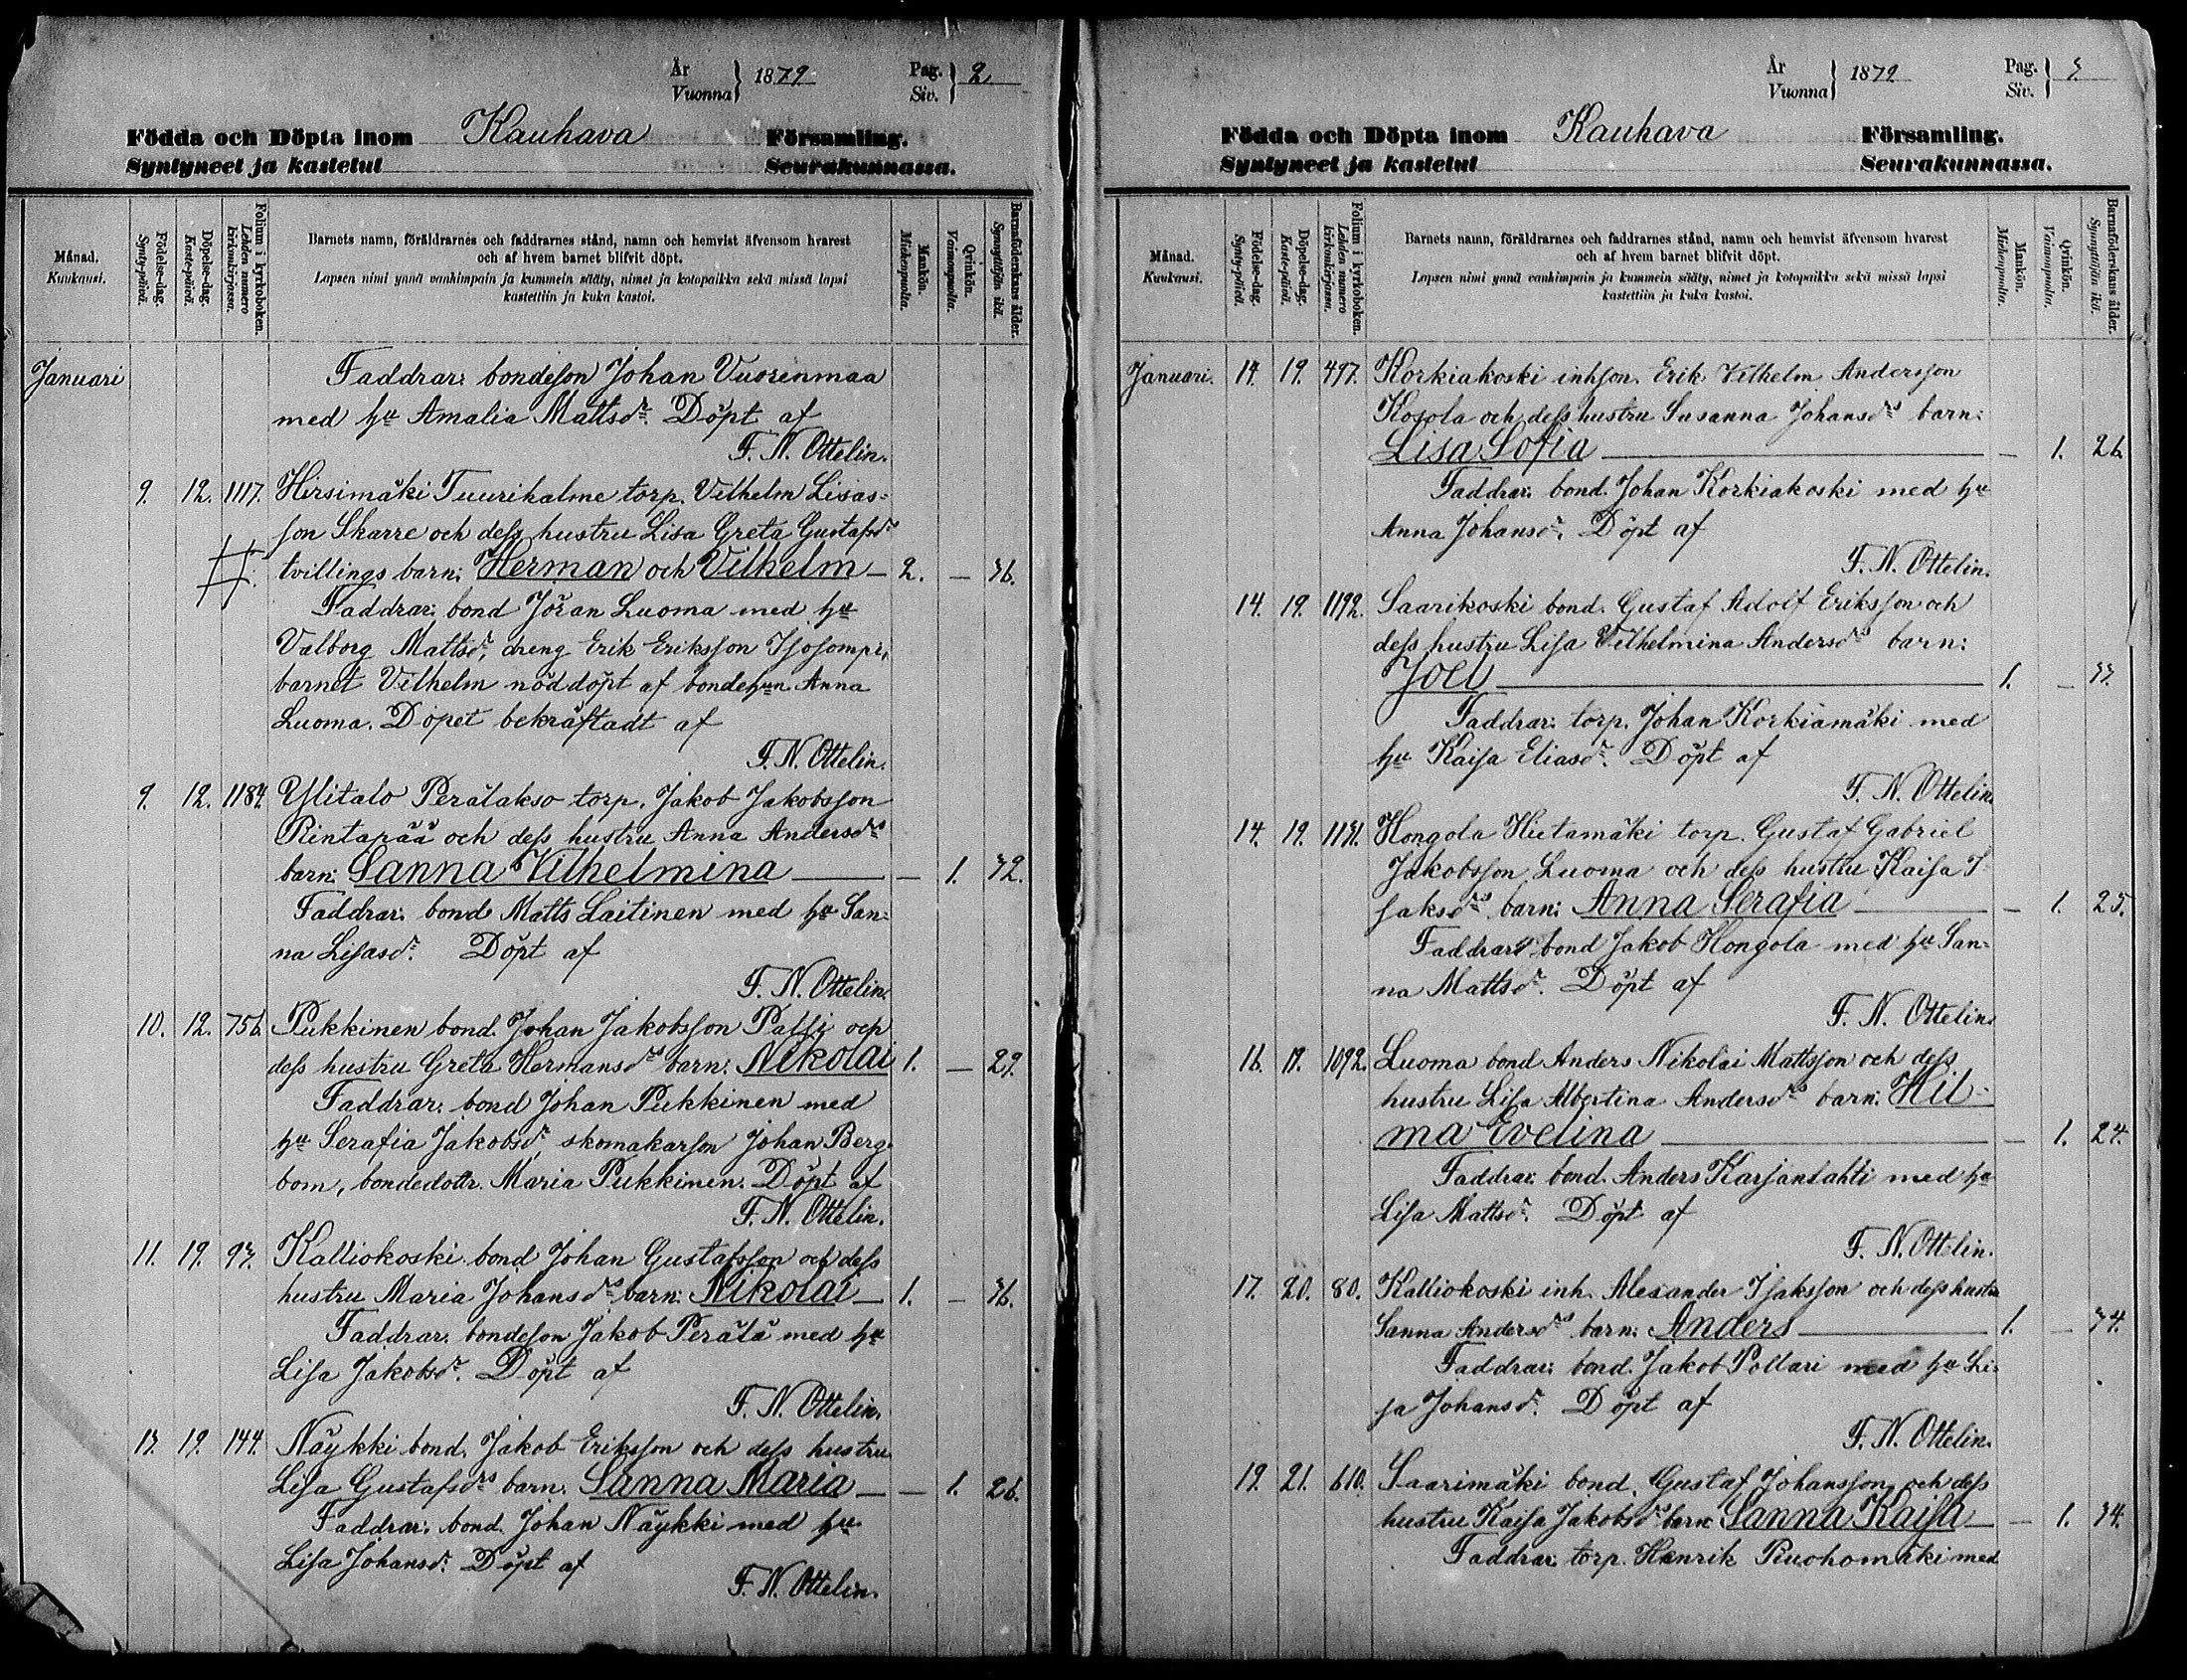 År
Vuonna } 1879 Pag.
Siv. } 2
Födda och Döpta inom Kauhava Församling.
Syntyneet ja kastetut Seurakunnassa.
Månad.
Kuukausi.
Födelse-dag.
Synty-päivä.
Döpelse-dag.
Kaste-päivä.
Folium i kyrkoboken.
Lehden numero kirkonkirjassa.
Barnets namn, föräldrarnes och faddrarnes stånd, namn och hemvist äfvensom hvarest
och af hvem barnet blifvit döpt.
Lapsen nimi ynnä vanhimpain ja kummein sääty, nimet ja kotopaikka sekä missä lapsi
kastettiin ja kuka kastoi.
Mankön.
Miehenpuolta.
Qvinkön.
Vaimonpuolta.
Barnaföderskans ålder.
Synnyttäjän ikä.
Januari Faddrar: bondeson Johan Vuorenmaa
med hu Amalia Mattsdr. Döpt af
F. N. Ottelin.
9. 12. 1117. Hirsimäki Tuurihalme torp. Vilhelm Lisas-
son Skarre och dess hustru Lisa Greta Gustafsdr
tvillings barn: Herman och Vilhelm — 2. — 36.
Faddrar: bond Jöran Luoma med hu
Valborg Mattsdr, dreng Erik Eriksson Isosompi,
barnet Vilhelm nöddöpt af bondehun Anna
Luoma. Döpet bekräftadt af
F. N. Ottelin.
9. 12. 1184. Ylitalo Perälakso torp. Jakob Jakobsson
Rintapää och dess hustru Anna Andersdrs
barn: Sanna Vilhelmina — — 1. 32.
Faddrar: bond Matts Laitinen med hu San-
na Lisasdr. Döpt af
F. N. Ottelin.
10. 12. 756. Pukkinen bond. Johan Jakobsson Passi och
dess hustru Greta Hermansdrs barn: Nikolai 1. — 29.
Faddrar: bond Johan Pukkinen med
hu Serafia Jakobsdr, skomakarson Johan Berg-
bom, bondedottr. Maria Pukkinen. Döpt af
F. N. Ottelin.
11. 19. 93. Kalliokoski bond Johan Gustafsson och dess
hustru Maria Johansdrs barn: Nikolai — 1. — 36.
Faddrar: bondeson Jakob Perälä med hu
Lisa Jakobsdr. Döpt af
F. N. Ottelin.
13. 19. 144. Näykki bond. Jakob Eriksson och dess hustru
Lisa Gustafsdrs barn: Sanna Maria — — 1. 26.
Faddrar: bond. Johan Näykki med hu
Lisa Johansdr. Döpt af
F. N. Ottelin.
År
Vuonna } 1879 Pag.
Siv. } 3.
Födda och Döpta inom Kauhava Församling.
Syntyneet ja kastetut Seurakunnassa.
Månad.
Kuukausi.
Födelse-dag.
Synty-päivä.
Döpelse-dag.
Kaste-päivä.
Folium i kyrkoboken.
Lehden numero kirkonkirjassa.
Barnets namn, föräldrarnes och faddrarnes stånd, namn och hemvist äfvensom hvarest
och af hvem barnet blifvit döpt.
Lapsen nimi ynnä vanhimpain ja kummein sääty, nimet ja kotopaikka sekä missä lapsi
kastettiin ja kuka kastoi.
Mankön.
Miehenpuolta.
Qvinkön.
Vaimonpuolta.
Barnaföderskans ålder.
Synnyttäjän ikä.
Januari. 14. 19. 497. Korkiakoski inhson. Erik Vilhelm Andersson
Kosola och dess hustru Susanna Johansdrs barn:
Lisa Sofia — — 1. 26.
Faddrar: bond. Johan Korkiakoski med hu
Anna Johansdr. Döpt af
F. N. Ottelin.
14. 19. 1192. Saarikoski bond. Gustaf Adolf Eriksson och
dess hustru Lisa Vilhelmina Andersdrs barn:
Joel — 1. — 33.
Faddrar: torp. Johan Korkiamäki med
hu Kaisa Eliasdr. Döpt af
F. N. Ottelin.
14. 19. 1131. Hongola Hietamäki torp. Gustaf Gabriel
Jakobsson Luoma och dess hustru Kaisa I-
saksdrs barn: Anna Serafia — — 1. 25.
Faddrar: bond Jakob Hongola med hu San-
na Mattsdr. Döpt af
F. N. Ottelin.
16. 19. 1092. Luoma bond Anders Nikolai Mattsson och dess
hustru Lisa Albertina Andersdrs barn: Hil-
ma Evelina — — 1. 24.
Faddrar: bond. Anders Karjanlahti med hu
Lisa Mattsdr. Döpt af
F. N. Ottelin.
17. 20. 80. Kalliokoski inh. Alexander Isaksson och dess hustru
Sanna Andersdrs barn: Anders — 1. — 34.
Faddrar: bond. Jakob Pollari med hu Li-
sa Johansdr. Döpt af
F. N. Ottelin.
19. 21. 610. Saarimäki bond. Gustaf Johansson och dess
hustru Kaisa Jakobsdrs barn: Sanna Kaisa — — 1. 34.
Faddrar: torp. Henrik Ruohomäki med